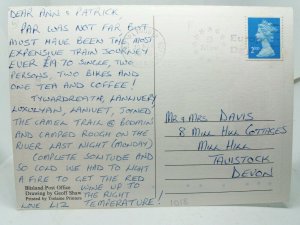 DEAR ANN & PATRICK,
PAR WAS NOT FAR BUT
MUST HAVE BEEN THE MOST
EXPENSIVE TRAIN JOURNEY
EVER £19.70 SINGLE, TWO
PERSONS, TWO BIKES AND
ONE TEA AND COFFEE!
TYWARDREATH, LANLIVERY
LUXULYAN, LANIVET, JOINED
THE CAMEL TRAIL @ BODMIN
AND CAMPED ROUGH ON THE
RIVER LAST NIGHT (MONDAY)
COMPLETE SOLITUDE AND
SO COLD WE HAD TO LIGHT
A FIRE TO GET THE RED
WINE UP TO
THE RIGHT
LOVE LIZ TEMPERATURE!
Blisland Post Office
Drawing by Geoff Shaw
Printed by Toolaine Printers
2ND
MR & MRS DAVIS
8 MILL HILL COTTAGES
MILL HILL
TAVISTOCK
DEVON
1018